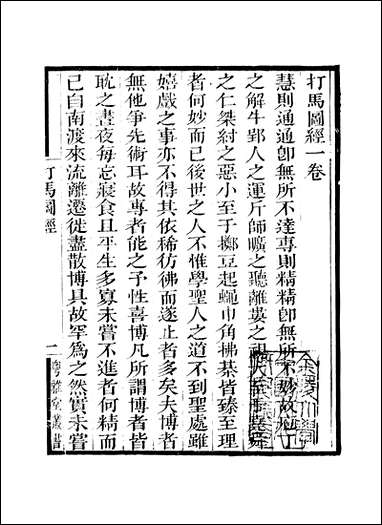 打馬圖經一卷
慧則通通卽無所不達專則精精卽無所不妙故庖丁
之解牛郢人之運斤師曠之聽離婁之視大至於堯舜
之仁桀紂之惡小至于擲豆起蠅巾角拂棊皆臻至理
者何妙而已後世之人不惟學聖人之道不到聖處雖
嬉戲之事亦不得其依稀彷彿而遂止者多矣夫博者
無他爭先術耳故專者能之予性喜博凡所謂博者皆
耽之晝夜每忘寢食且平生多寡未嘗不進者何精而
已自南渡來流離遷徙盡散博具故罕爲之然實未嘗
打馬圖經
一
粵雅堂叢書